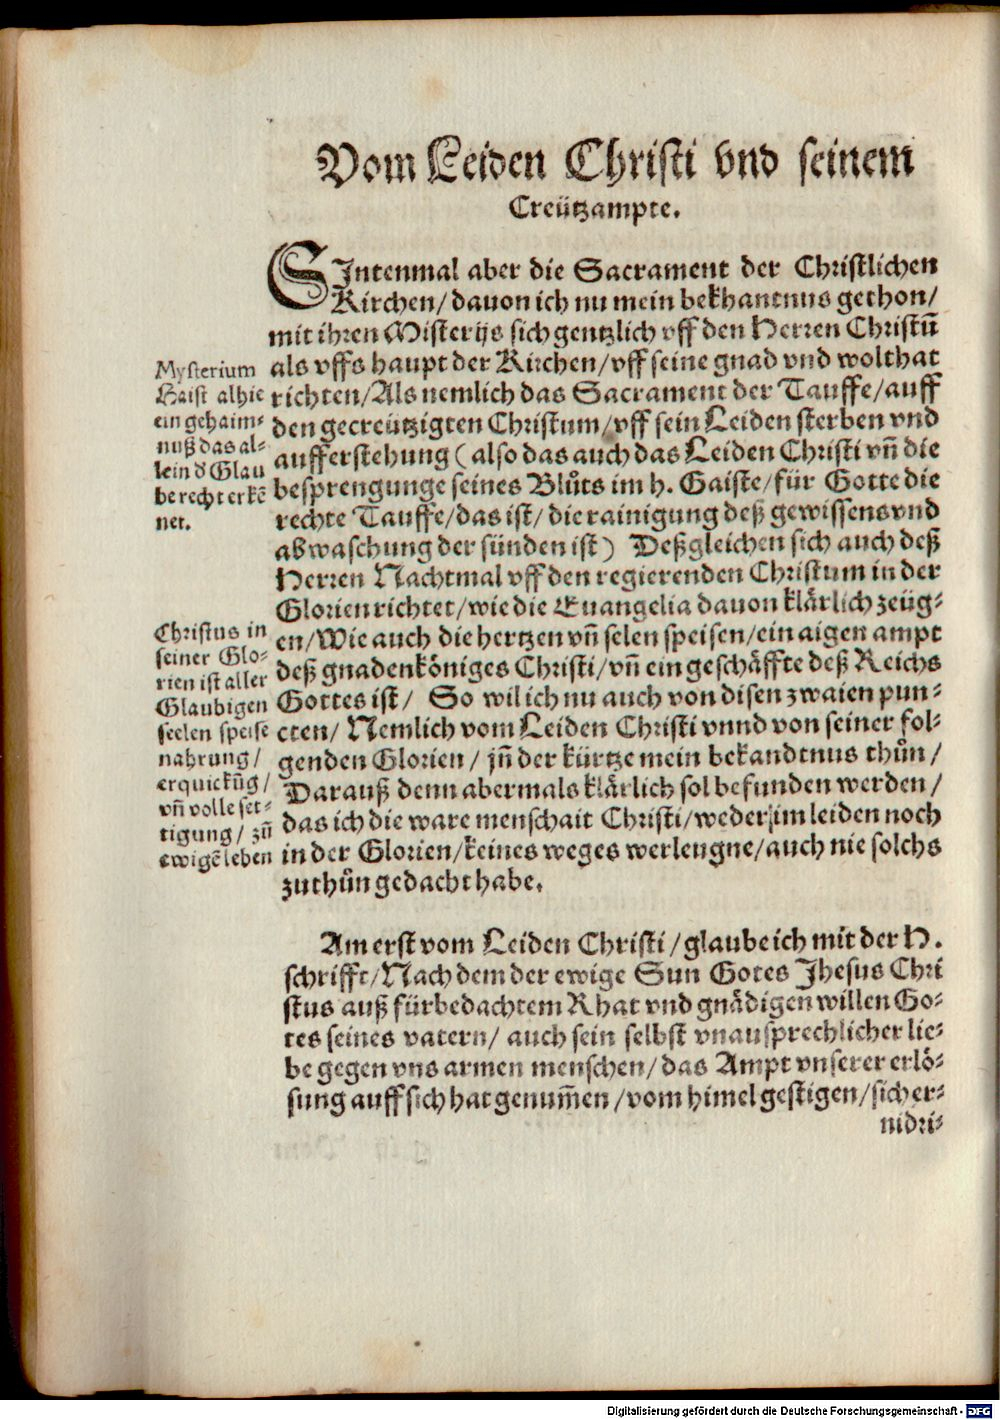 Vom Leiden Christi vnd seinem
Creützampte.
SIntenmal aber die Sacrament der Christlichen
Kirchen/ dauon ich nu mein bekhantnus gethon/
mit ihren Misterijs sich gentzlich vff den Herren Christū
als vffs haupt der Kirchen/ vff seine gnad vnd wolthat
richten/ Als nemlich das Sacrament der Tauffe/ auff
den gecreützigten Christum/ vff sein Leiden sterben vnd
aufferstehung (also das auch das Leiden Christi vñ die
besprengunge seines Blůts im h. Gaiste/ für Gotte die
rechte Tauffe/ das ist/ die rainigung deß gewissens vnd
abwaschung der sünden ist) Deßgleichen sich auch deß
Herren Nachtmal vff den regierenden Christum in der
Glorien richtet/ wie die Euangelia dauon klärlich zeüg-
en/ Wie auch die hertzen vñ selen speisen/ ein aigen ampt
deß gnadenköniges Christi/ vñ ein geschäffte deß Reichs
Gottes ist/ So wil ich nu auch von disen zwaien pun-
cten/ Nemlich vom Leiden Christi vnnd von seiner fol-
genden Glorien/ jñ der kürtze mein bekandtnus thůn/
Darauß denn abermals klärlich sol befunden werden/
das ich die ware menschait Christi/ weder im leiden noch
in der Glorien/ keines weges werleugne/ auch nie solchs
zuthůn gedacht habe.
Mysterium
Haist alhie
ein gehaim-
nuß das al-
lein d Glau
be recht erkē
net.
Christus in
seiner Glo-
rien ist aller
Glaubigen
seelen speise
nahrung/
erquickūg/
vñ volle set-
tigung/ zū
ewigē leben
Am erst vom Leiden Christi/ glaube ich mit der H.
schrifft/ Nach dem der ewige Sun Gotes Jhesus Chri
stus auß fürbedachtem Rhat vnd gnädigen willen Go-
tes seines vatern/ auch sein selbst vnausprechlicher lie-
be gegen vns armen menschen/ das Ampt vnserer erlö-
sung auff sich hat genum̄en/ vom himel gestigen/ sich er-
nidri-
Digitalisierung gefördert durch die Deutsche Forschungsgemeinschaft - DFG